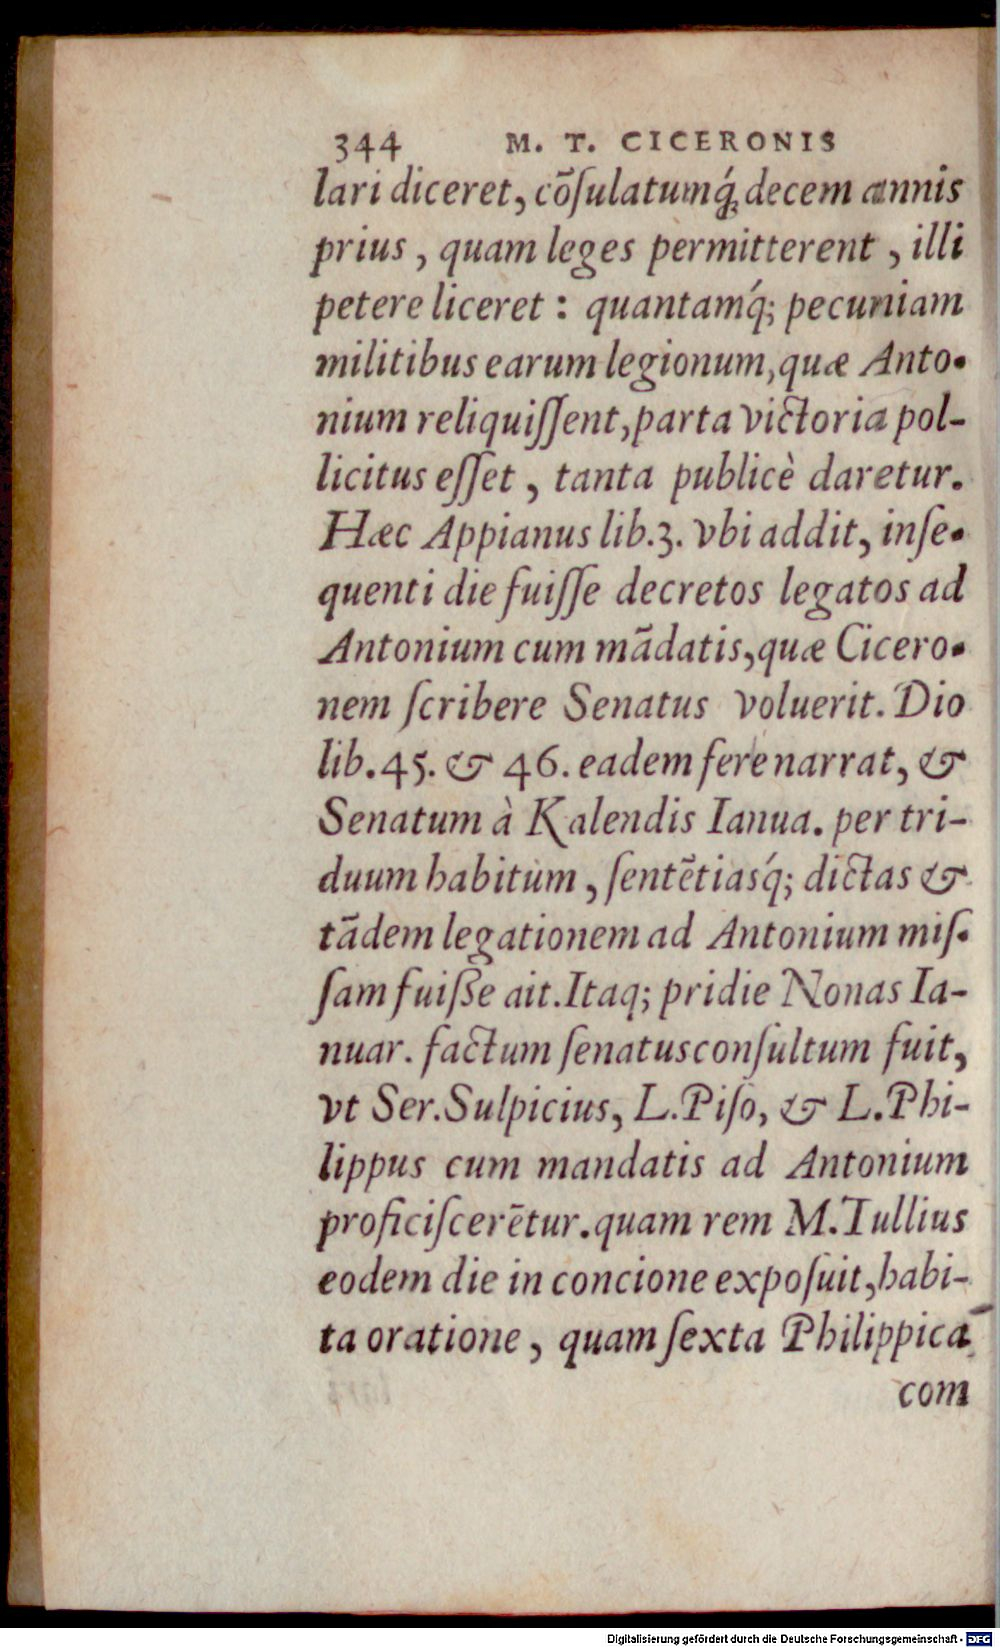 344 M. T. CICERONIS
lari diceret, cõſulatumq́; decem annis
prius , quam leges permitterent , illi
petere liceret : quantamq́; pecuniam
militibus earum legionum, quæ Anto-
nium reliquiſſent, parta victoria pol-
licitus eſſet , tanta publicè daretur.
Hæc Appianus lib.3. vbi addit, inſe-
quenti die fuiſſe decretos legatos ad
Antonium cum mãdatis, quæ Cicero-
nem ſcribere Senatus voluerit. Dio
lib. 45. & 46. eadem fere narrat, &
Senatum à Kalendis Ianua. per tri-
duum habitum , ſentẽtiasq́; dictas &
tãdem legationem ad Antonium miſ-
ſam fuiſſe ait. Itaq; pridie Nonas Ia-
nuar. factum ſenatusconſultum fuit,
vt Ser. Sulpicius, L. Piſo, & L. Phi-
lippus cum mandatis ad Antonium
proficiſcerẽtur. quam rem M. Tullius
eodem die in concione expoſuit, habi-
ta oratione , quam ſexta Philippica
com
Digitalisierung gefördert durch die Deutsche Forschungsgemeinschaft - DFG